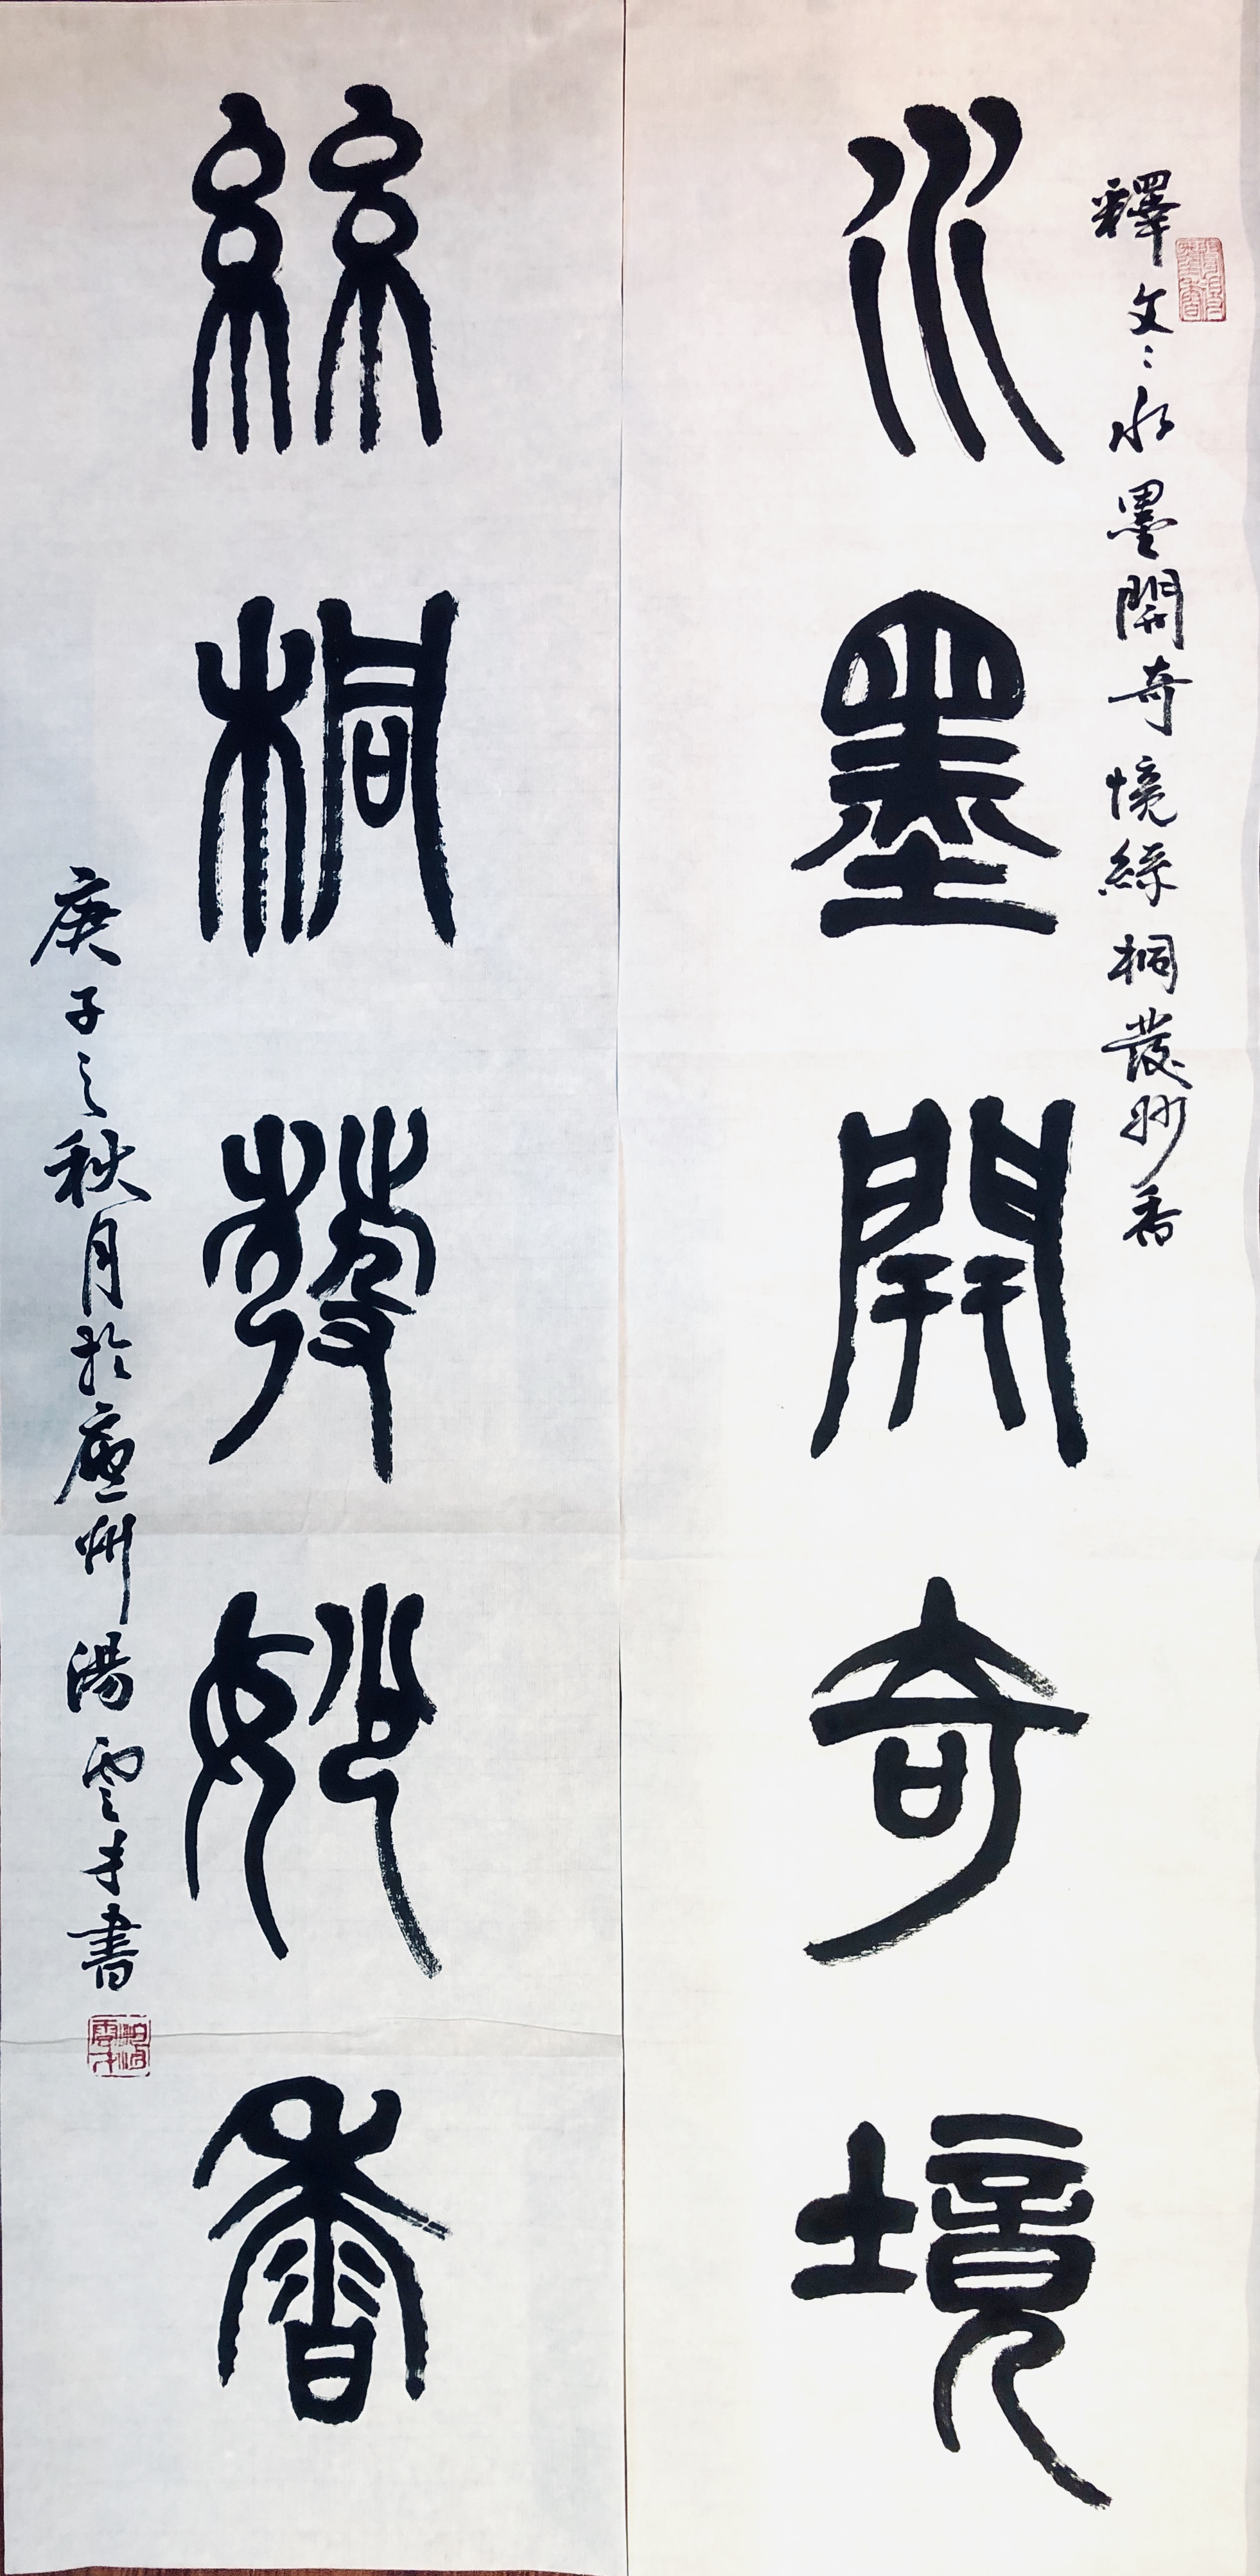 釋文：水墨開奇境絲桐發妙香
水墨開奇境
絲桐發妙香
庚子之秋月於廬州湯雲才書